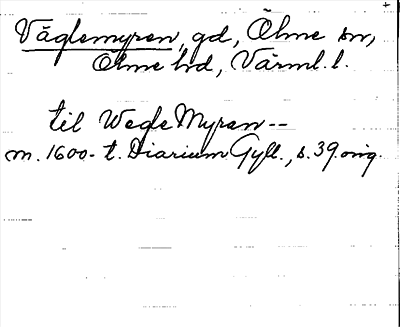 Väglemyren, gd, Ölme sn,
Ölme hd, Värml. l.
til Wegle Myran --
m. 1600- t. Diarium Gyll., s. 39. orig.